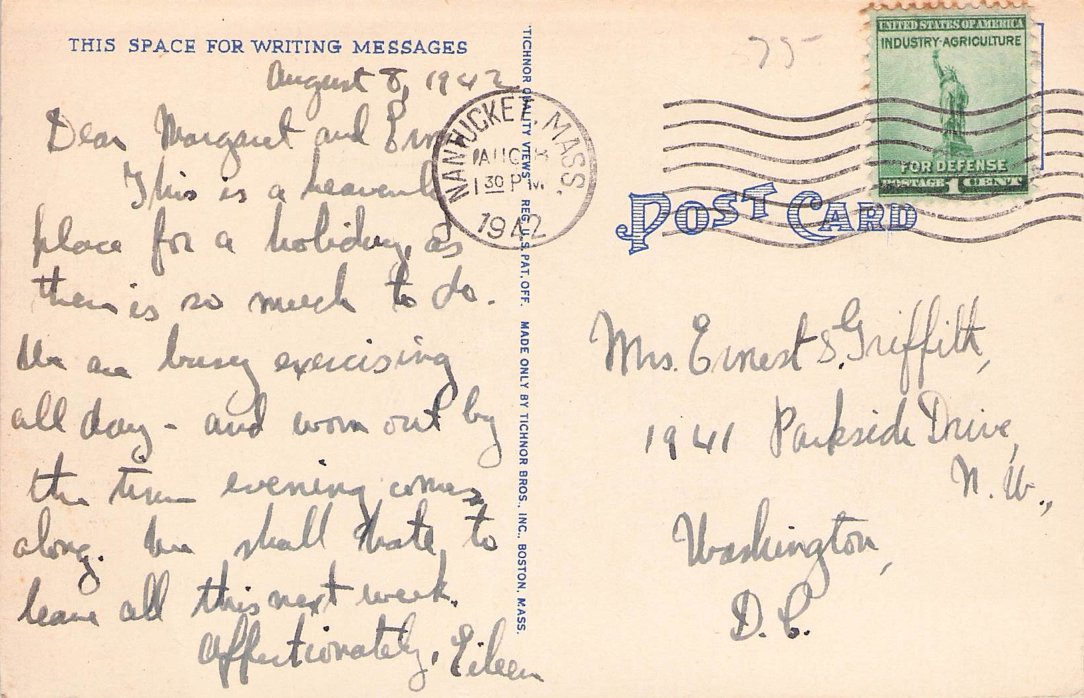 THIS SPACE FOR WRITING MESSAGES
August 8, 1942
Dear Margaret and Ern
This is a heavenly
place for a holiday, as
there is so much to do.
We are busy exercising
all day - and worn out by
the time evening comes
along. We shall hate to
leave all this next week.
Affectionately, Eileen
TICHNOR QUALITY VIEWS REG. U.S. PAT. OFF. MADE ONLY BY TICHNOR BROS., INC., BOSTON, MASS.
NANTUCKET, MASS.
AUG 8
1 30 P.M.
1942
75
UNITED STATES OF AMERICA
INDUSTRY·AGRICULTURE
FOR DEFENSE
POSTAGE 1 CENT
POST CARD
Mrs. Ernest S. Griffith,
1941 Parkside Drive,
N. W.,
Washington,
D.C.